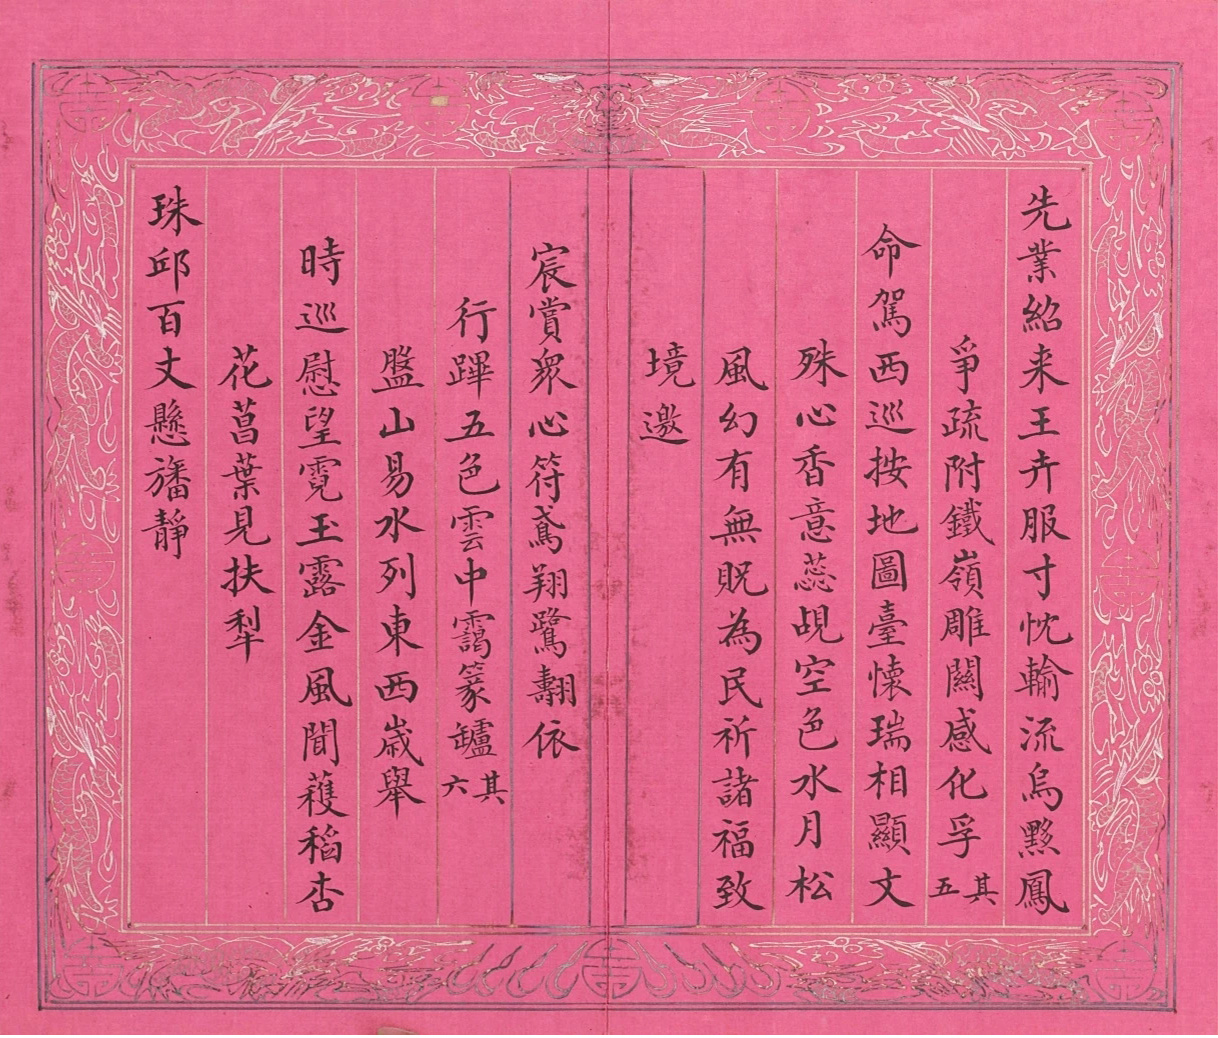 先業紹来王卉服寸忱輸流烏黟鳳
爭疏附鐵嶺雕關感化孚其五
命駕西巡按地圖臺懷瑞相顯文
殊心香意蕊覘空色水月松
風幻有無貺為民祈諸福致
境邀
宸賞衆心符鳶翔鷺翿依
行蹕五色雲中靄篆罏其六
盤山易水列東西歲舉
時巡慰望霓玉露金風聞穫稻杏
花菖葉見扶犁
珠邱百丈懸旛靜